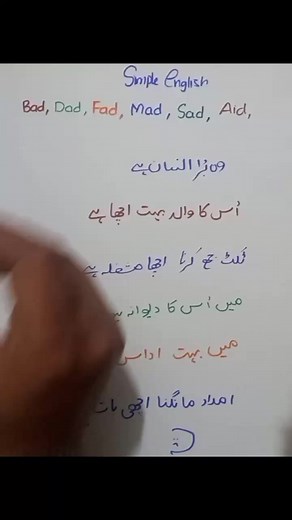 Simple English
Bad, Dad, Fad, Mad, Sad, Aid,
وہ بُرا انسان ہے
اُس کا والد بہت اچھا ہے
ٹکٹ جمع کرنا اچھا مشغلہ ہے
میں اُس کا دیوانہ
میں بہت اداس
امداد مانگنا اچھی بات